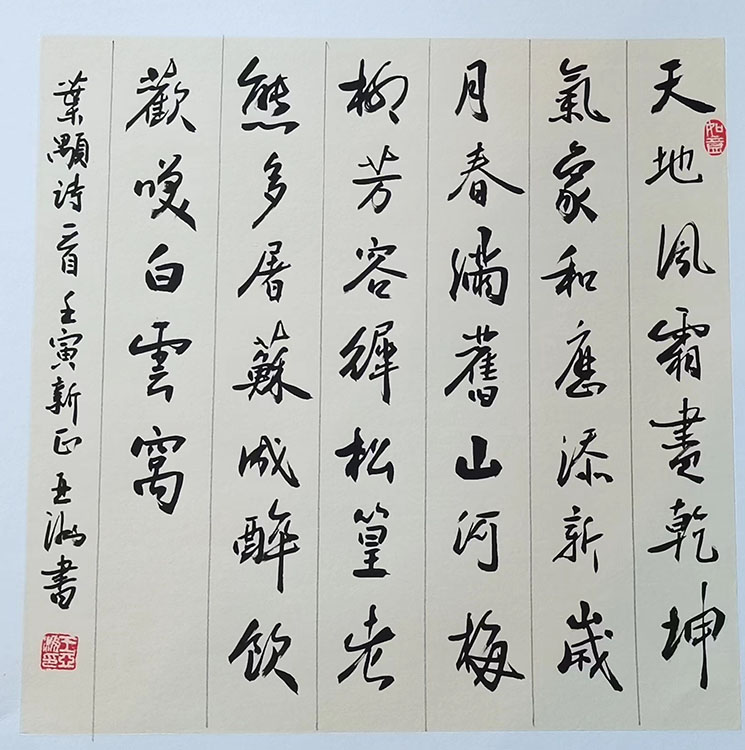 天地風霜盡乾坤
氣象和應添新歲
月春滿舊山河梅
柳芳容徲松篁老
態多屠蘇成醉飲
歡咲白雲窩
葉顒詩一首 壬寅新正 亞書
如意